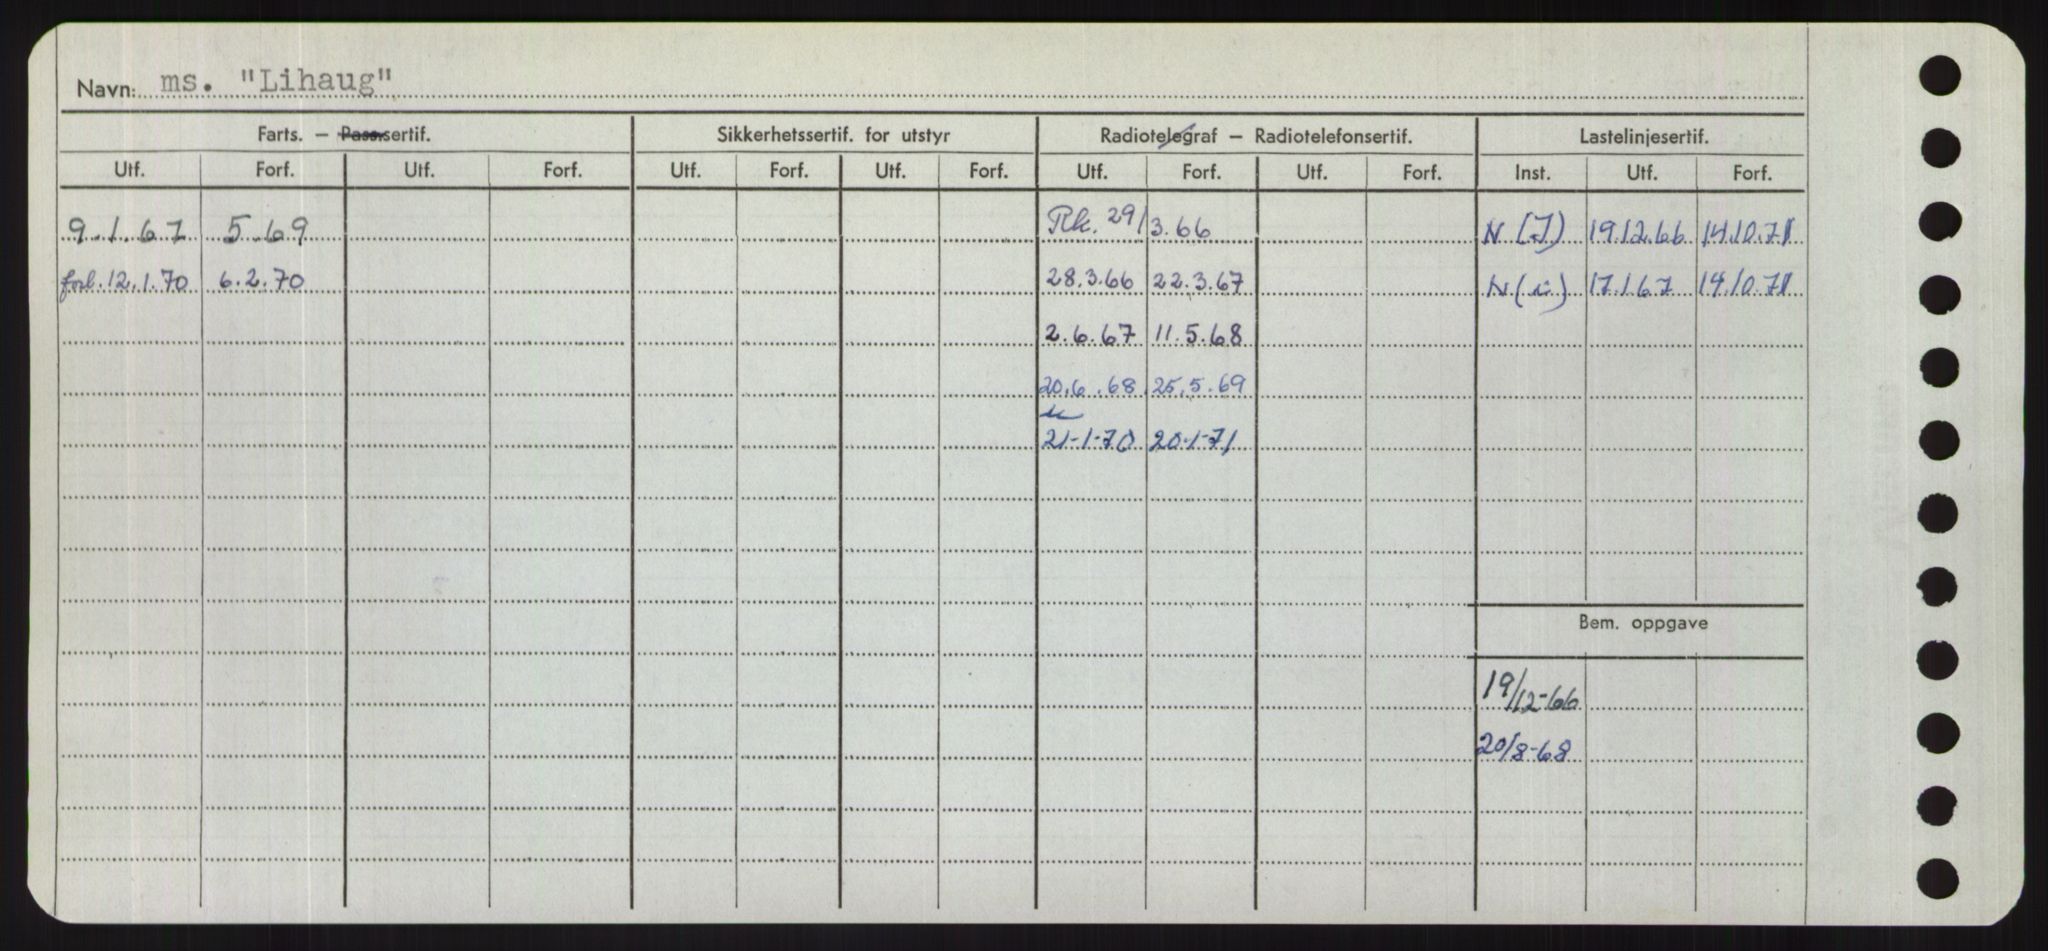 Navn: ms. "Lihaug"
Farts. — Pass.sertif. Sikkerhetssertif. for utstyr Radiotelegraf — Radiotelefonsertif. Lastelinjesertif.
Utf. Forf. Utf. Forf. Utf. Forf. Utf. Forf. Utf. Forf. Utf. Forf. Inst. Utf. Forf.
9.1.67 5.69 Rk. 29/3.66 N (I) 19.12.66 14.10.71
forl. 12.1.70 6.2.70 28.3.66 22.3.67 N 17.1.67 14.10.71
2.6.67 11.5.68
20.6.68 25.5.69
21-1-70 20-1-71
Bem. oppgave
19/12-66
20/8-68